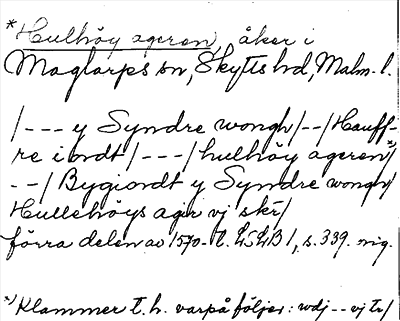 *Hulhöy ageren, åker i
Maglarps sn, Skytts hd, Malm. l.
/--- y Syndre wongh/--/Hauff-
re iordt/---/hulhöy ageren*/
--/Bygiordt y Syndre wongh/
Hullehöys agir vj skr/
förra delen av 1570-t. LSLB 1, s. 339. mg.
*/Klammer t. h. varpå följer: wdj -- vj tr/